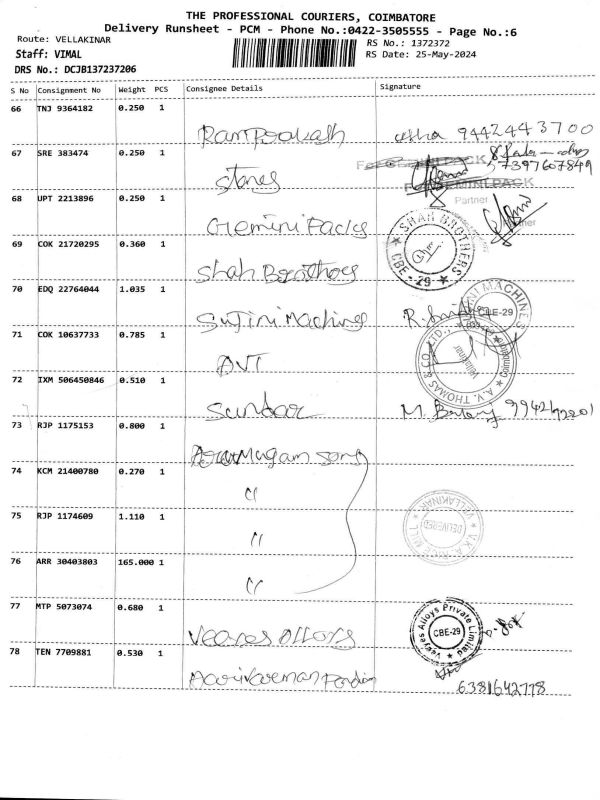 THE PROFESSIONAL COURIERS, COIMBATORE
Delivery Runsheet - PCM - Phone No.:0422-3505555 - Page No.:6
Route: VELLAKINAR
RS No.: 1372372
Staff: VIMAL
RS Date: 25-May-2024
DRS No.: DCJB137237206
S No Consignment No Weight PCS Consignee Details Signature
66 TNJ 9364182 0.250 1
Ramprakash usha 9442443700
67 SRE 383474 0.250 1
7397607849
Stanes
68 UPT 2213896 0.250 1
Partner
Gemini Packs
69 COK 21720295 0.360 1
SHAH BROTHERS CBE-29
Shah Brothers
70 EDQ 22764044 1.035 1
Sujini Machines R.
MACHINES CBE-29
71 COK 10637733 0.785 1
AVT
A.V. THOMAS & CO. LTD., Coimbatore Vellakinar
72 IXM 506450846 0.510 1
Sundar M.
73 RJP 1175153 0.800 1
74 KCM 21400780 0.270 1
"
75 RJP 1174609 1.110 1
V.K.A. MILL VELLAKINAR DELIVERED
"
76 ARR 30403803 165.000 1
"
77 MTP 5073074 0.680 1
Veeyes Alloys Private Limited CBE-29
Veeyes Alloys
78 TEN 7709881 0.530 1
6381642778